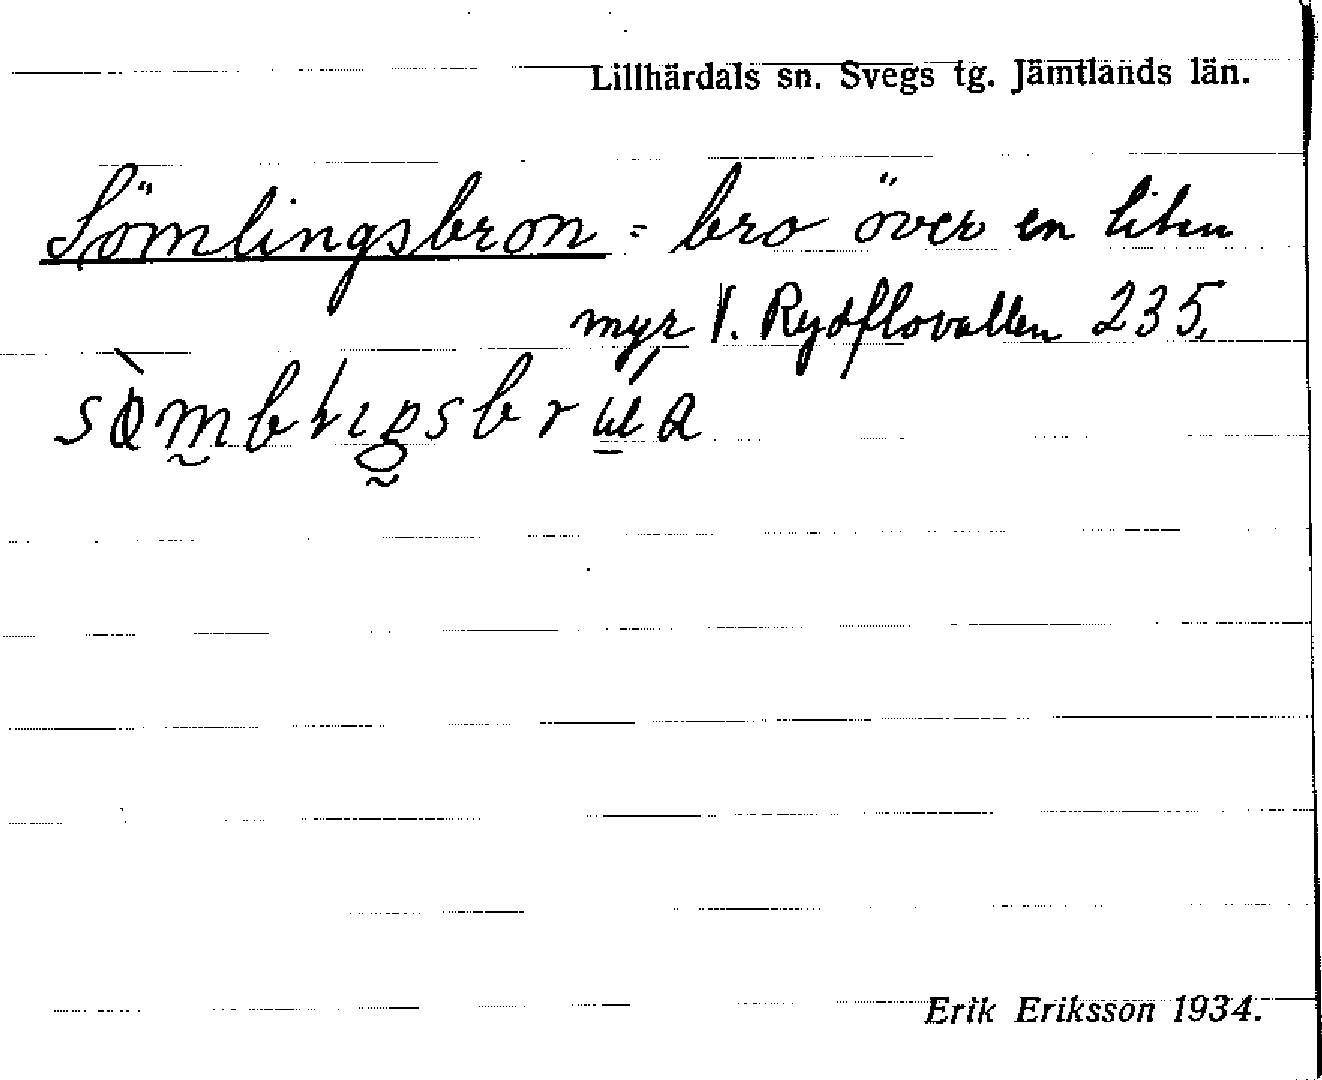 Lillhärdals sn. Svegs tg. Jämtlands län.
Sömlingsbron = bro över en liten
myr V. Rydflovallen 235.
Erik Eriksson 1934.